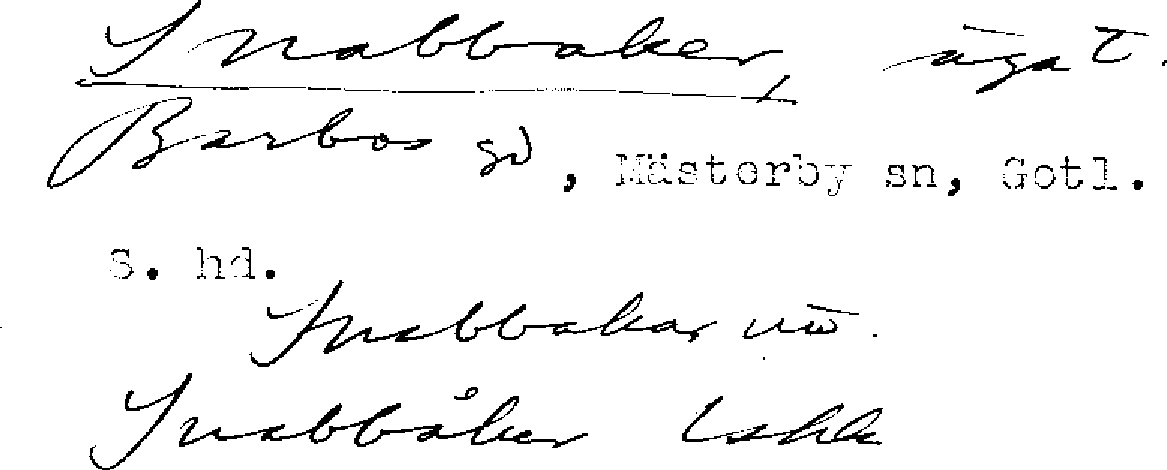 Snabbaker, ägat.
Barbos gd, Mästerby sn, Gotl.
S. hd.
Snabbakar
Snabbåker Lskk